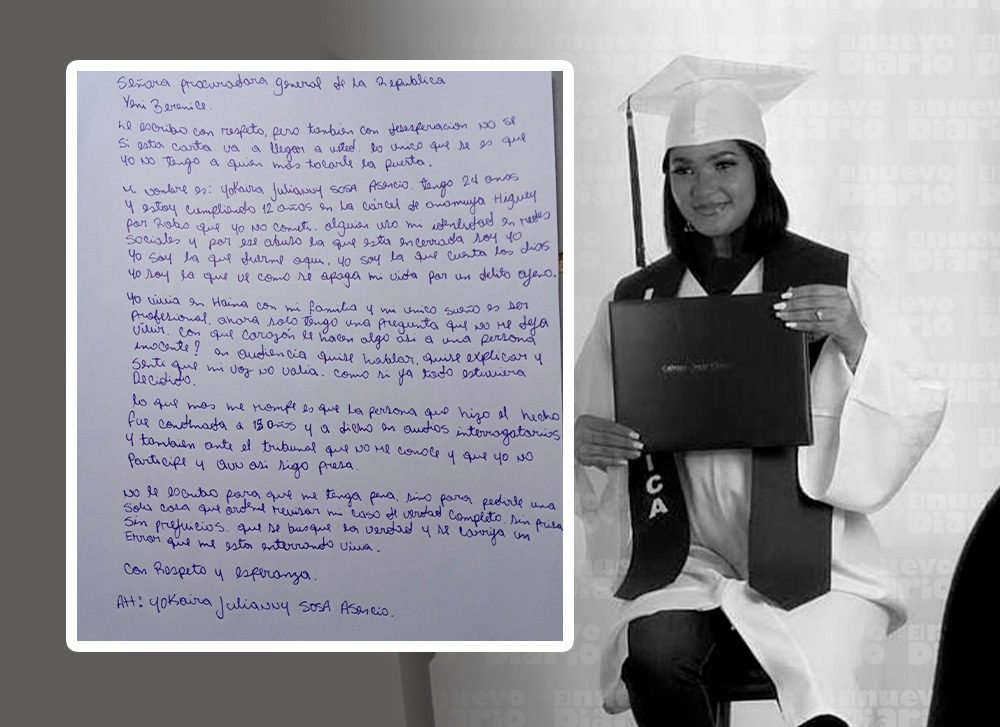 Señora procuradora general de la Republica
Yeni Berenice.
Le escribo con respeto, pero tambien con desesperacion no se
Si esta carta va a llegar a usted. lo unico que se es que
yo no tengo a quien mas tocarle la puerta.
Mi nombre es: Yokaira Julianny Sosa Asencio. tengo 24 anos
Y estoy cumpliendo 12 años en la carcel de anamuya Higuey
por Robo que yo no cometi. alguien uso mi identidad en redes
Sociales y por ese abuso la que esta encerrada soy yo
Yo soy la que duerme aqui. yo soy la que cuenta los dias
Yo soy la que ve como se apaga mi vida por un delito ajeno.
Yo vivia en Haina con mi familia y mi unico sueño es ser
Profesional, ahora solo tengo una pregunta que no me deja
vivir. con que corazón le hacen algo asi a una persona
inocente? en audiencia quise hablar, quise explicar y
Senti que mi voz no valia. como si ya todo estuviera
Decidido.
lo que mas me rompe es que la persona que hizo el hecho
fue condenada a 15 años y a dicho en audios interrogatorios
Y tambien ante el tribunal que no me conoce y que yo no
Participe y aun asi sigo presa.
No le escribo para que me tenga pena, sino para pedirle una
Sola cosa que ordene revisar mi caso de verdad completo. sin prisa
Sin prejuicios. que se busque la verdad y se corrija un
Error que me esta enterrando viva.
con Respeto y esperanza.
Att: Yokaira Julianny Sosa Asencio.
ICA
El nuevo
Diario